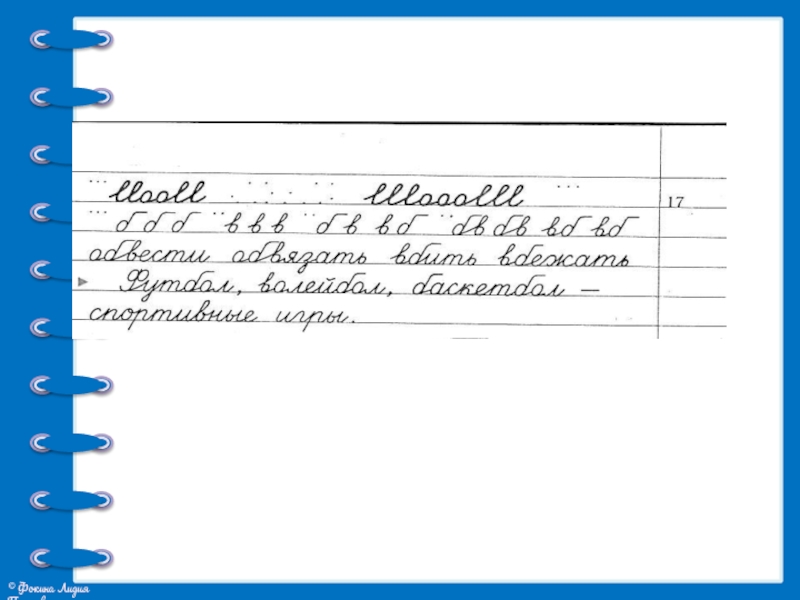 17
б б б в в в б в в б бв бв вб вб
обвести обвязать вбить вбежать
Футбол, волейбол, баскетбол –
спортивные игры.
© Фокина Лидия